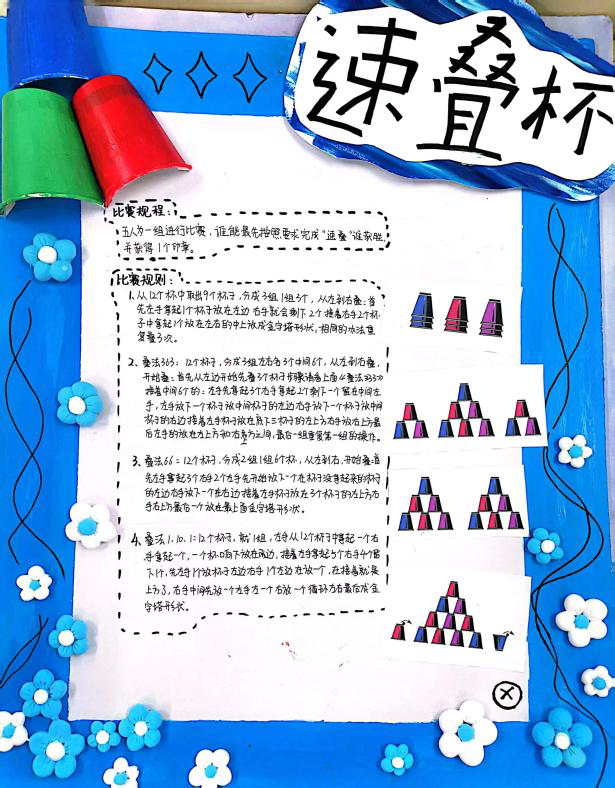 速叠杯
比赛规程:
五人为一组进行比赛,谁能最先按照要求完成"速叠"谁获胜,
并获得1个印章。
比赛规则:
1. 从12个杯中取出9个杯子,分成3组1组3个,从左到右叠:首
先左手拿起1个杯子放在左边 右手就会剩下2个 接着右手2个杯
子中拿起1个放在左右的中上放成金字塔形状,相同的办法重
复叠3次。
2. 叠法363: 12个杯子,分成3组左右各3个中间6个,从左到右叠,
开始叠:首先从左边开始先叠3个杯子步骤请看上面的叠法333
接着中间6个的:左手先拿起3个右手拿起2个剩下一个留在中间左
手,左手放下一个杯子放中间杯子的左边右手放下一个杯子放中间
杯子的右边接着左手杯放在底下三杯子的左上方右手放右上方最
后左手的放在左上方和右上方之间,最后一组重复第一组的操作。
3. 叠法66:12个杯子,分成2组1组6个杯,从左到右,开始叠:首
先左手拿起3个右手2个左手先开始放下一个在杯子没拿起来的杯子
的左边右手放下一个在右边接着左手杯子放在3个杯子的左上方右
手右上方最后一个放在最上面金字塔形状。
4. 叠法1.10.1:12个杯子,就1组,左手从12个杯子中拿起一个右
手拿起一个,一个杯口向下放在两边,接着左手拿起5个右手4个留
下1个,先左手1个放杯子左边右手1个右边在放一个,在接着就是
上方3,右手中间先放一个左手左一个右放一个循环左右最后成金
字塔形状。